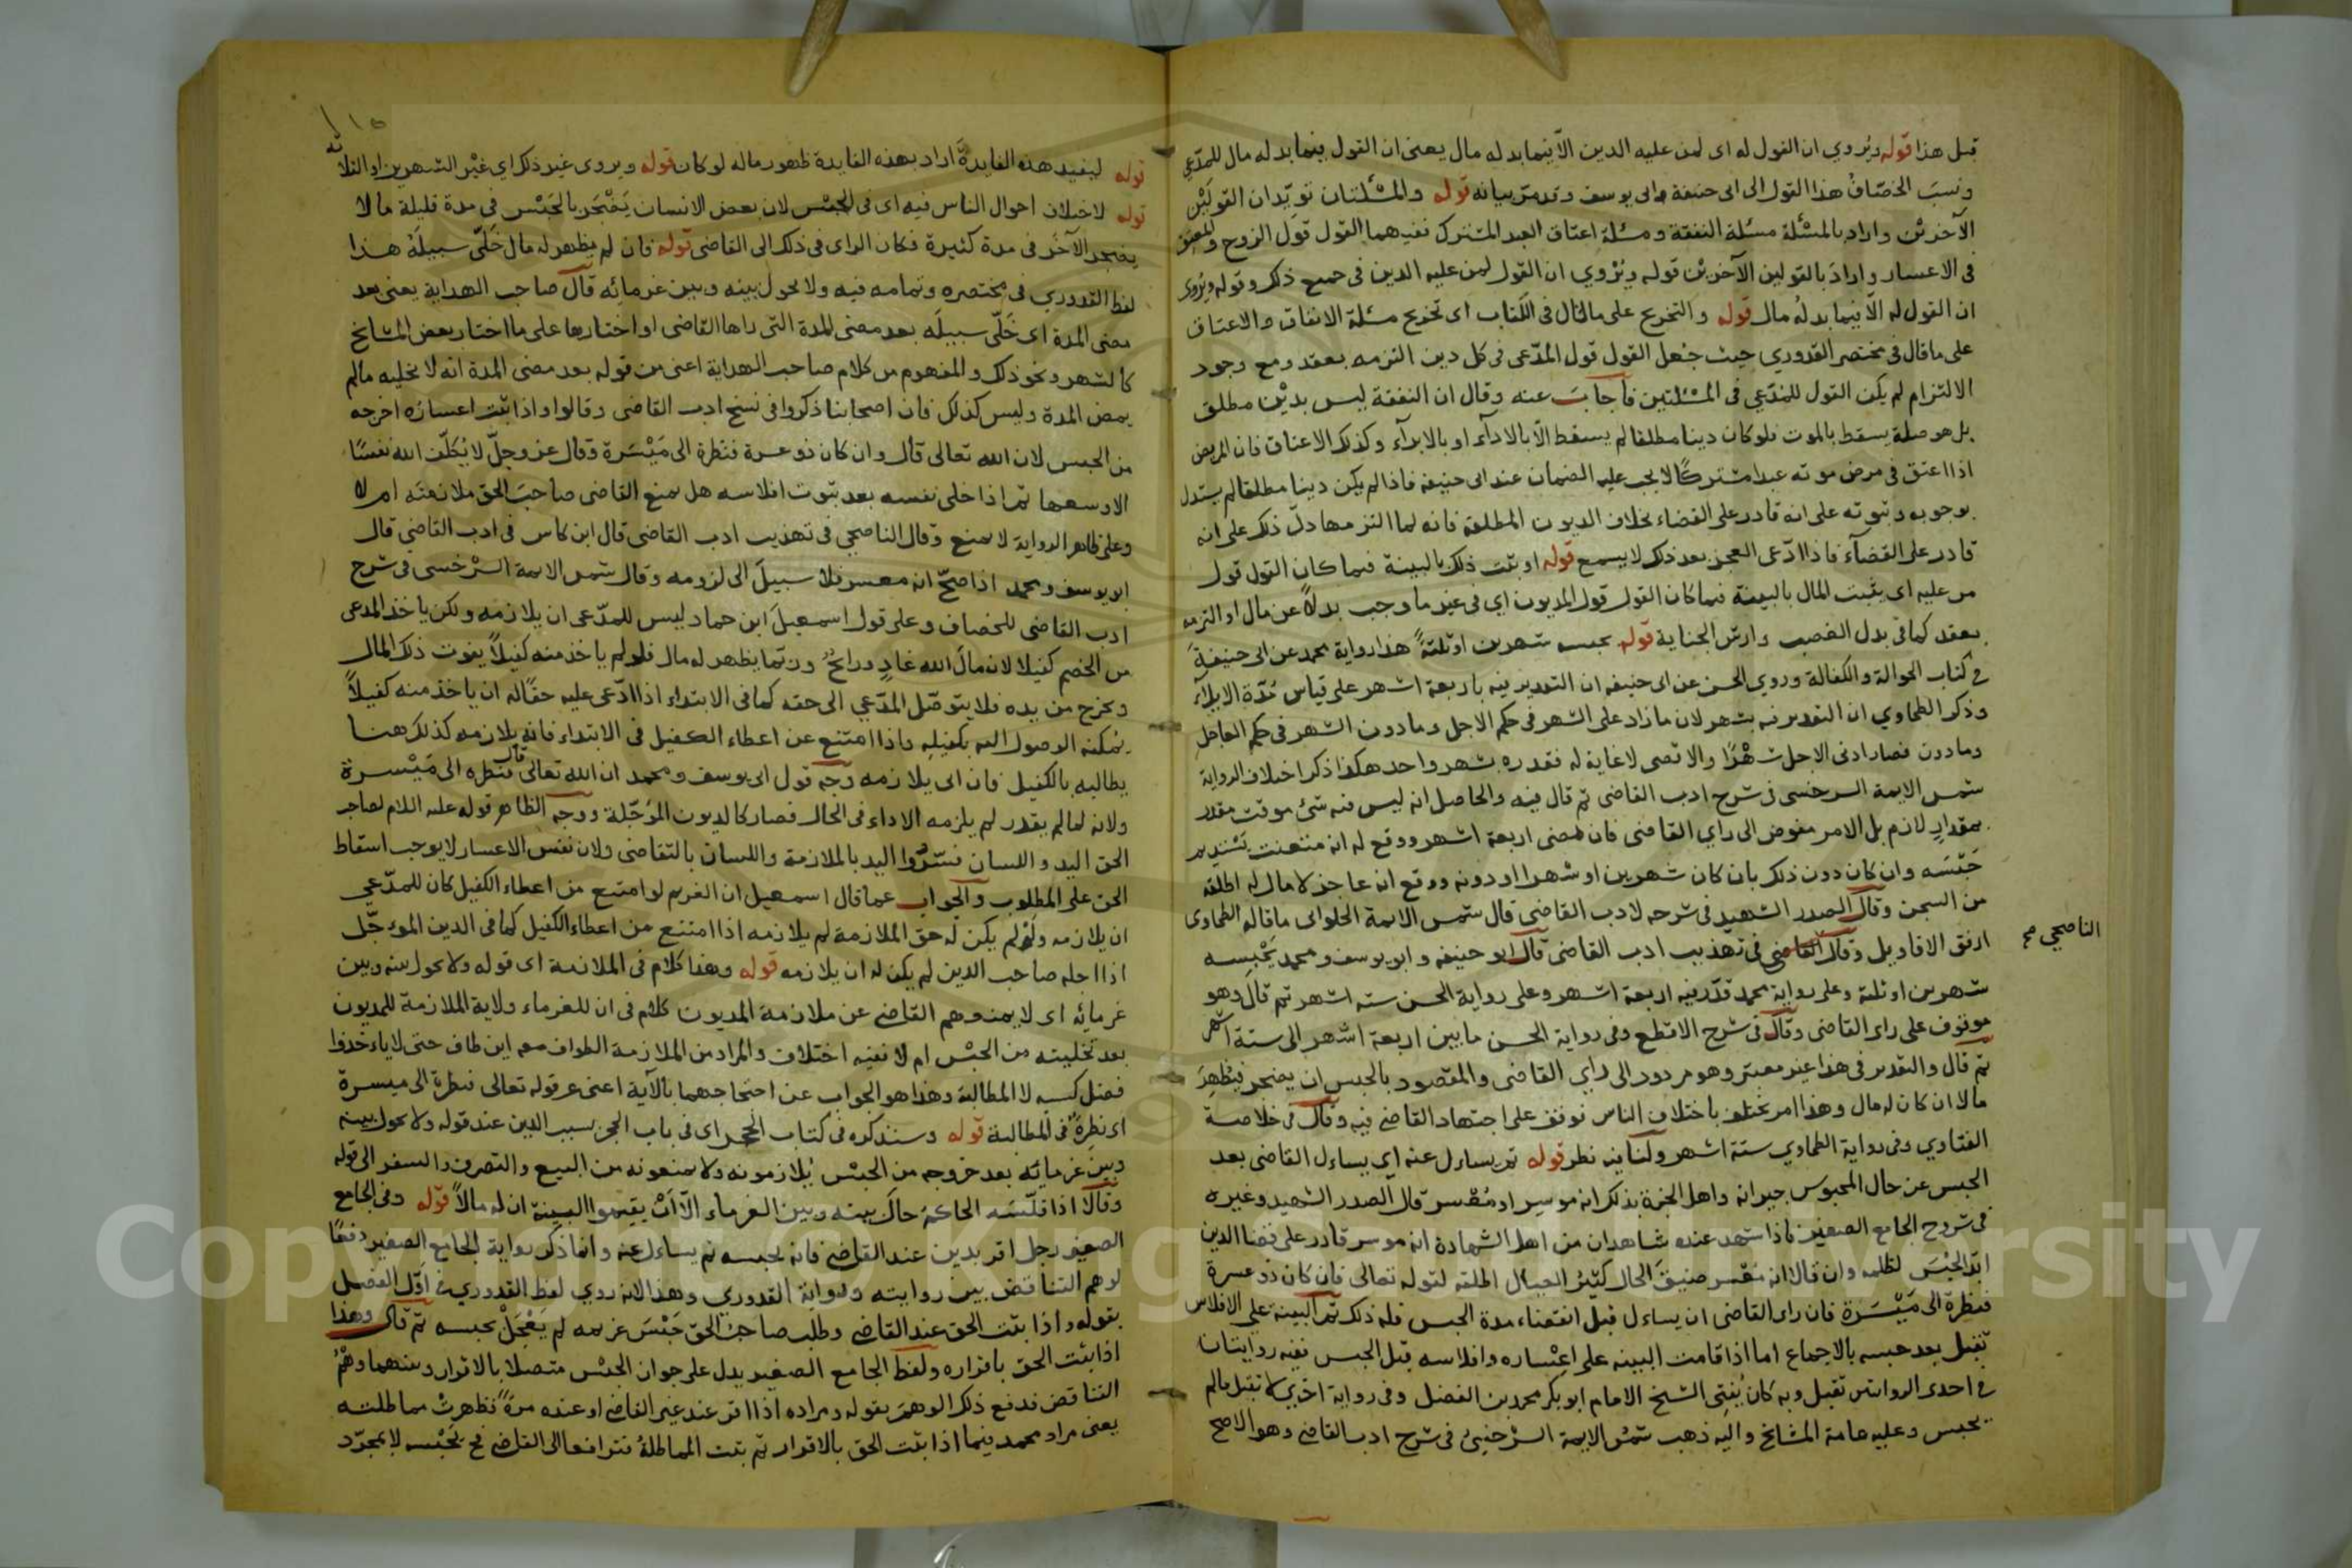 قبل هذا قوله ويُروي ان القول له اى لمن عليه الدين الاّ فيما بدله مال يعنى ان القول فيما بدله مال للمدّعي
ونسبَ الخصّافُ هذا القول الى ابى حنيفة وابى يوسف وقد مرّ بيانه قوله والمسئلتان تؤيّدان القولَيْن
الآخرَيْن واراد بالمسئلة مسئلة النفقة ومسئلة اعتاق العبد المشترك ففيهما القول قول الزوج والمعتق
فى الاعسار وارادَ بالقولين الآخرَيْن قوله ويُرْوي ان القول لمن عليه الدين فى جميع ذلك وقوله ويُروى
ان القول له الاّ فيما بدلُه مال قوله والتخريج على ما قال فى الكتاب اى تخريج مسئلة الانفاق والاعتاق
على ما قال فى مختصر القدوري حيث جُعل القول قول المدّعى فى كل دين التزمه بعقد ومع وجود
الالتزام لم يكن القول للمدّعي فى المسئلتين فاجابَ عنه وقال ان النفقة ليس بديْن مطلق
بل هو صلة يسقط بالموت فلو كان دينا مطلقا لم يسقط الاّ بالادآء او بالابرآء وكذلك الاعتاق فان المريض
اذا اعتق فى مرض موته عبدا مشتركًا لا يجب عليه الضمان عند ابى حنيفه فاذا لم يكن دينا مطلقا لم يستدل
بوجوبه وثبوته على انه قادر على القضاء بخلاف الديون المطلقة فانه لما التزمها دلّ ذلك على انه
قادر على القضآء فاذا ادّعى العجز بعد ذلك لا يسمع قوله او يثبت ذلك بالبينة فيما كان القول قول
من عليه اى يثبت المال بالبينة فيما كان القول قول المديون اي فى غير ما وجب بدلاً عن مال او التزمه
بعقد كما فى بدل الغصب وارش الجناية قوله يحبسه شهرين او ثلثةً هذا رواية محمد عن ابى حنيفةَ
فى كتاب الحوالة والكفالة وروى الحسن عن ابى حنيفه ان التقدير فيه باربعة اشهر على قياس مُدّة الايلآء
وذكر الطحاوي ان التقدير فيه بشهر لان ما زاد على الشهر فى حكم الاجل وما دون الشهر فى حكم العاجل
وما دون فصار ادنى الاجل شهْرًا والاقصى لا غاية له فقدره بشهر واحد هكذا ذكر اختلاف الرواية
شمس الايمة السرخسى فى شرح ادب القاضى ثم قال فيه والحاصل انه ليس فيه شئ موقت مقدر
بمقدارٍ لازم بل الامر مفوض الى راي القاضى فان مضى اربعة اشهر ووقع له انه متعنت يستديم
حَبْسَه وان كان دون ذلك بان كان شهرين او شهرا او دونه ووقع انه عاجز لا مال له اطلقه
من السجن وقال الصدر الشهيد فى شرحه لادب القاضى قال شمس الايمة الحلوانى ما قاله الطحاوى
ارفق الاقاويل وقال القاضى فى تهذيب ادب القاضى قال ابو حنيفه وابو يوسف ومحمد يَحْبِسه
الناصحي صح
شهرين او ثلثة وعلى رواية محمد قدّر فيه اربعة اشهر وعلى رواية الحسن ستة اشهر ثم قال وهو
موقوف على راى القاضى وقال فى شرح الاقطع وفى رواية الحسن ما بين اربعة اشهر الى ستة اشهر
ثم قال والتقدير فى هذا غير معتبر وهو مردود الى راي القاضى والمقصود بالحبس ان يضجر فيُظهِرَ
مالا ان كان له مال وهذا امر يختلف باختلاف الناس فوقف على اجتهاد القاضى فيه وقال فى خلاصة
الفتاوي وفى رواية الطحاوي ستة اشهر ولنا فيه نظر قوله ثم يساءل عنه اي يساءل القاضى بعد
الحبس عن حال المحبوس جيرانه واهل الخبرة بذلك انه موسر او مُفْسر قال الصدر الشهيد وغيره
فى شروح الجامع الصغير فاذا شهد عنده شاهدان من اهل الشهادة انه موسر قادر على قضا الدين
ابّد الحبْسَ لظلمه وان قالا انه مُعْسر ضيقَ الحال كثيرُ العيال اطلقه لقوله تعالى فان كان ذو عسرة
فنظرة الى مَيْسَرَة فان راى القاضى ان يساءل قبل انقضاء مدة الحبس فله ذلك ثم البينة على الافلاس
تقبل بعد حبسه بالاجماع اما اذا قامت البينه على اعْساره وافلاسه قبل الحبس ففيه روايتان
فى احدى الروايتين تقبل وبه كان يُفتِى الشيخ الامام ابو بكر محمد بن الفضل وفى رواية اخرى لا تقبل ما لم
يحبس وعليه عامة المشايخ واليه ذهب شمس الايمة السرْخسىّ فى شرح ادب القاضى وهو الاصح
قوله ليفيد هذه الفايدةَ اراد بهذه الفايدة ظهور ماله لو كان قوله ويروى غير ذلك اي غيْر الشهرين او الثلاثه
قوله لاختلاف احوال الناس فيه اى فى الحبْس لان بعض الانسان يَضْجَر بالحَبْس فى مدة قليلة ما لا
يضجر الآخَر فى مدة كثيرة فكان الراى فى ذلك الى القاضى قوله فان لم يظهر له مال خَلّى سبيلَهُ هذا
لفظ القدوري فى مختصره وتمامه فيه ولا يحول بينه وبين غرمائِه قال صاحب الهداية يعنى بعد
مضى المدة اى خَلّى سبيلَه بعد مضى المدة التى راها القاضى او اختارها على ما اختار بعض المشايخ
كالشهر ونحو ذلك والمفهوم من كلام صاحب الهداية اعنى من قوله بعد مضى المدة انه لا يخليه ما لم
يمض المدة وليس كذلك فان اصحابنا ذكروا فى نسخ ادب القاضى وقالوا واذا ثبت اعسارُه اخرجه
من الحبس لان الله تعالى قال وان كان ذو عسرة فنظرة الى مَيْسَرة وقال عز وجلّ لا يُكلّف الله نفسًا
الا وسعها ثم اذا خلى نفسه بعد ثبوت افلاسه هل يمنع القاضى صاحبَ الحق ملازمتَه ام لا
وعلى ظاهر الرواية لا يمنع وقال الناصحي فى تهذيب ادب القاضى قال ابن كاس فى ادب القاضي قال
ابو يوسف ومحمد اذا صحّ انه معسر فلا سبيلَ الى لزومه وقال شمس الايمة السرْخسى فى شرح
ادب القاضى للخصاف وعلى قول اسمعيلَ ابن حماد ليس للمدّعى ان يلازمه ولكن ياخذ المدعى
من الخصم كفيلا لان مالَ الله غادٍ ورائحٌ وربّما يظهر له مال فلو لم ياخذ منه كفيلاً يفوت ذلك المال
ويخرج من يده فلا يتوصّل المدّعي الى حقه كما فى الابتداء اذا ادّعى عليه حقًا له ان ياخذ منه كفيلاً
يُمكنه الوصول اليه بكفيلِه واذا امتنع عن اعطاء الكفيل فى الابتداء فانه يلازمه كذلك هنا
يطالبه بالكفيل فان ابى يلازمه وجه قول ابى يوسف ومحمد ان الله تعالى قال فنظرة الى مَيْسرة
ولانه لما لم يقدر لم يلزمه الاداء فى الحال فصار كالديون المؤجّلة ووجه الظاهر قوله عليه السلام لصاحب
الحق اليد واللسان فسّرُوا اليد بالملازمة واللسان بالتقاضى ولان نفس الاعسار لا يوجب اسقاط
الحق على المطلوب والجواب عما قال اسمعيل ان الغريم لو امتنع من اعطاء الكفيل كان للمدّعي
ان يلازمه ولَوْ لم يكن له حق الملازمة لم يلازمه اذا امتنع من اعطاء الكفيل كما فى الدين المؤجّل
اذا اجله صاحب الدين لم يكن له ان يلازمه قوله وهذا كلام فى الملازمة اى قوله ولا يحول بينه وبين
غرمائِه اى لا يمنعهم القاضى عن ملازمة المديون كلام فى ان للغرماء ولاية الملازمة للمديون
بعد تخليته من الحبْس ام لا ففيه اختلاف والمراد من الملازمة الطواف معه اين طاف حتى لا ياءخذوا
فضل كسبه لا المطالبة وهذا هو الجواب عن احتجاجهما بالآية اعنى عن قوله تعالى فنظرة الى ميسرة
اى نظرةٌ فى المطالبة قوله وسنذكره فى كتاب الحجر اى فى باب الحجر بسبب الدين عند قوله ولا يحول بينه
وبين غرمائه بعد خروجه من الحبْس يُلازمونه ولا يمنعونه من البيع والتصرف والسفر الى قوله
وقالا اذا فلّسَه الحاكمُ حالَ بينه وبين الغرماء الاّ أنْ يقيموا البينة ان له مالاً قوله وفى الجامع
الصغير رجل اقر بدين عند القاضى فانه يحبسه ثم يساءل عنه وانما ذكر رواية الجامع الصغير دفعًا
لوهم التناقض بين روايته ورواية القدوري وهذا لانه روي لفظ القدوري فى اوّل الفصل
بقوله واذا ثبت الحق عند القاضى وطلب صاحبُ الحق حَبْسَ غريمه لم يَعْجَلْ بحبسه ثم قال وهذا
اذا ثبت الحق باقراره ولفظ الجامع الصغير يدل على جواز الحبْس متصلا بالاقرار وبينهما وهْمُ
التناقض فدفع ذلك الوهمَ بقوله ومراده اذا اقر عند غير القاضى او عنده مرةً فظهرتْ مماطلته
يعنى مراد محمد فيما اذا ثبت الحق بالاقرار ثم ثبت المماطلةُ فترافعا الى القاضى فح يَحْبْسه لا بمجرّد
Copyright © King Saud University